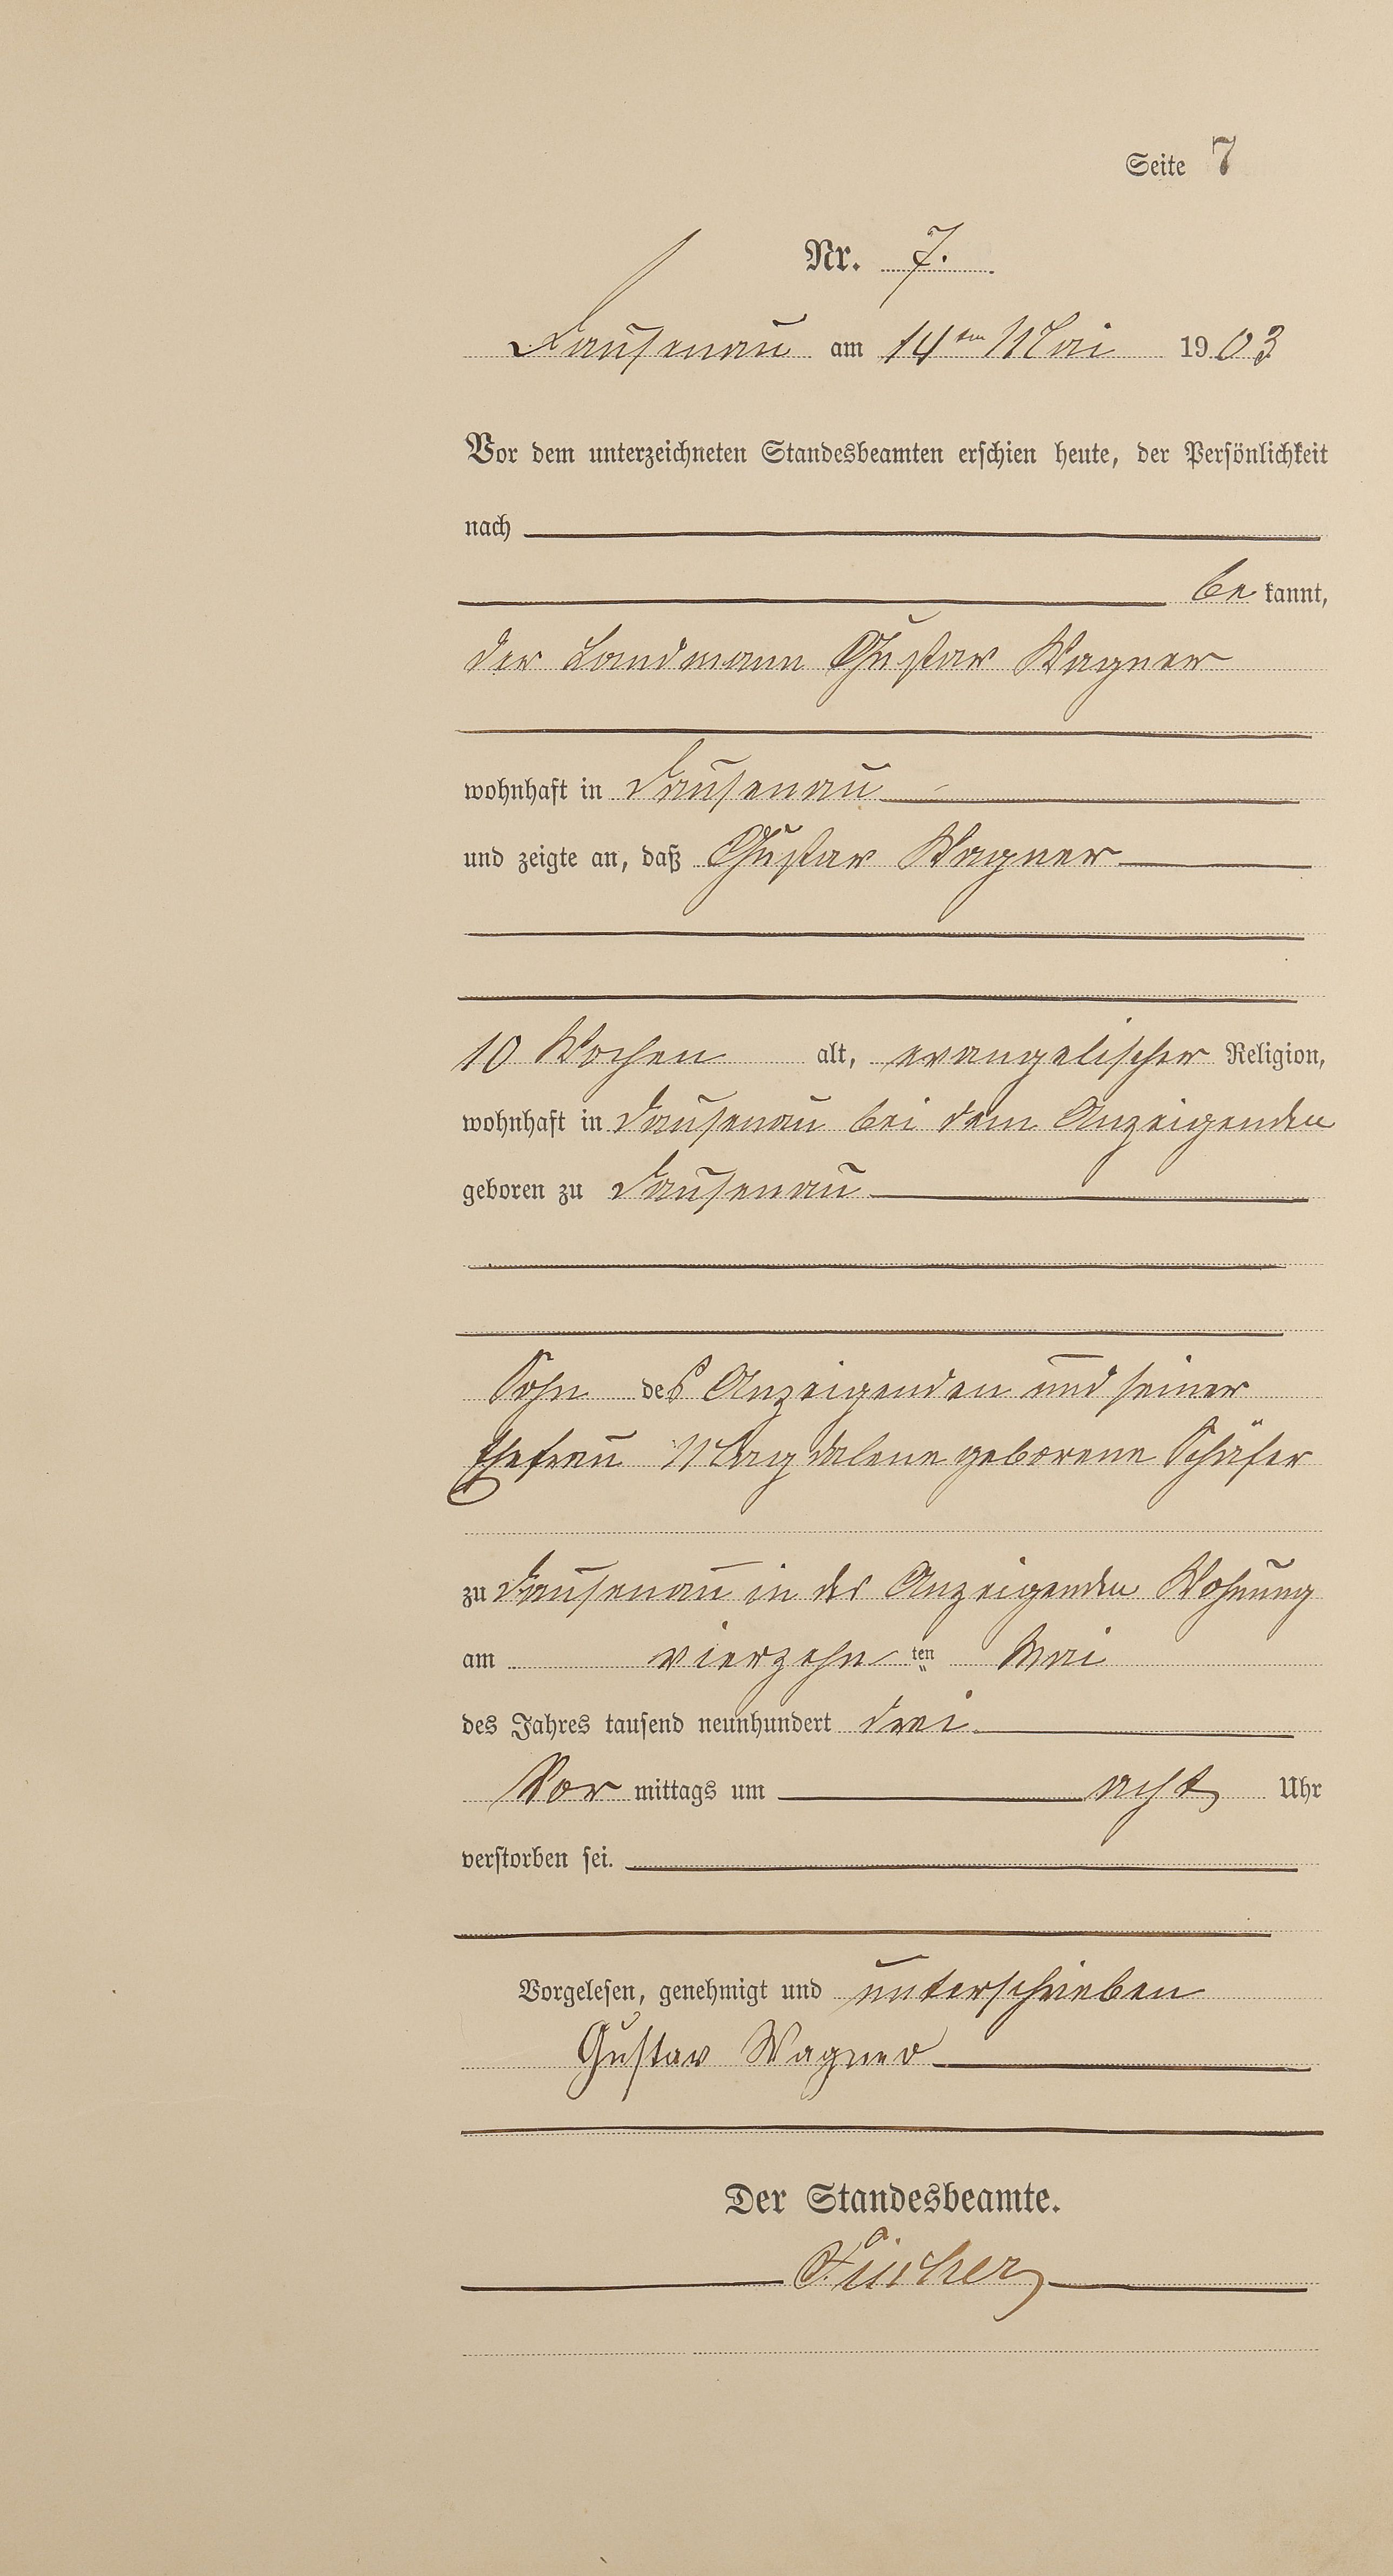 Seite 7
Nr. 7.
Dausenau am 14ten Mai 1903
Vor dem unterzeichneten Standesbeamten erschien heute, der Persönlichkeit
nach
bekannt,
der Landmann Gustav Wagner
wohnhaft in Dausenau
und zeigte an, daß Gustav Wagner
10 Wochen alt, evangelischer Religion,
wohnhaft in Dausenau bei dem Anzeigenden
geboren zu Dausenau
Sohn des Anzeigenden und seiner
Ehefrau Magdalene geborene Schäfer
zu Dausenau in des Anzeigenden Wohnung
am vierzehnten Mai
des Jahres tausend neunhundert drei
Vormittags um acht Uhr
verstorben sei.
Vorgelesen, genehmigt und unterschrieben
Gustav Wagner
Der Standesbeamte.